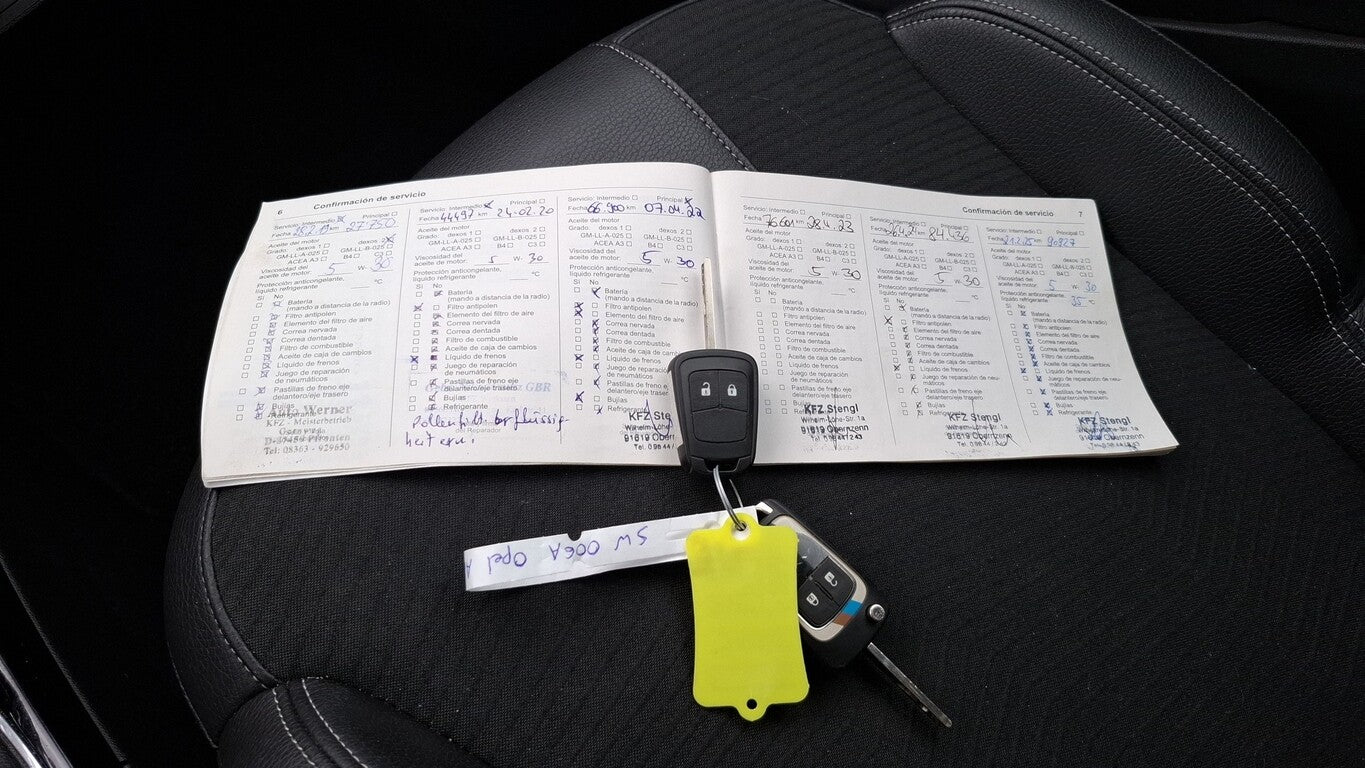 6 Confirmación de servicio
Servicio: Intermedio Principal
Fecha 27 750
Aceite del motor
Grado: dexos 1 dexos 2
GM-LL-A-025 GM-LL-B-025
ACEA A3 B4 C3
Viscosidad del
aceite de motor: 5 W- 30
Protección anticongelante,
líquido refrigerante °C
Sí No
Batería
(mando a distancia de la radio)
Filtro antipolen
Elemento del filtro de aire
Correa nervada
Correa dentada
Filtro de combustible
Aceite de caja de cambios
Líquido de frenos
Juego de reparación
de neumáticos
Pastillas de freno eje
delantero/eje trasero
Bujías
Refrigerante
Werner
KFZ - Meisterbetrieb
D-87459 Pfronten
Tel: 08363 - 929650
Servicio: Intermedio Principal
Fecha 44497 km 24.02.20
Aceite del motor
Grado: dexos 1 dexos 2
GM-LL-A-025 GM-LL-B-025
ACEA A3 B4 C3
Viscosidad del
aceite de motor: 5 W- 30
Protección anticongelante,
líquido refrigerante °C
Sí No
Batería
(mando a distancia de la radio)
Filtro antipolen
Elemento del filtro de aire
Correa nervada
Correa dentada
Filtro de combustible
Aceite de caja de cambios
Líquido de frenos
Juego de reparación
de neumáticos
Pastillas de freno eje
delantero/eje trasero
Bujías
Refrigerante
GBR
del Reparador
Servicio: Intermedio Principal
Fecha 66 900 km 07.04.22
Aceite del motor
Grado: dexos 1 dexos 2
GM-LL-A-025 GM-LL-B-025
ACEA A3 B4 C3
Viscosidad del
aceite de motor: 5 W- 30
Protección anticongelante,
líquido refrigerante °C
Sí No
Batería
(mando a distancia de la radio)
Filtro antipolen
Elemento del filtro de aire
Correa nervada
Correa dentada
Filtro de combustible
Aceite de caja de cambios
Líquido de frenos
Juego de reparación
de neumáticos
Pastillas de freno eje
delantero/eje trasero
Bujías
Refrigerante
KFZ Stengl
91619 Obernzenn
Confirmación de servicio 7
Servicio: Intermedio Principal
Fecha 76601 km 28.4.23
Aceite del motor
Grado: dexos 1 dexos 2
GM-LL-A-025 GM-LL-B-025
ACEA A3 B4 C3
Viscosidad del
aceite de motor: 5 W- 30
Protección anticongelante,
líquido refrigerante °C
Sí No
Batería
(mando a distancia de la radio)
Filtro antipolen
Elemento del filtro de aire
Correa nervada
Correa dentada
Filtro de combustible
Aceite de caja de cambios
Líquido de frenos
Juego de reparación
de neumáticos
Pastillas de freno eje
delantero/eje trasero
Bujías
KFZ Stengl
Wilhelm-Löhe-Str. 1a
91619 Obernzenn
Servicio: Intermedio Principal
Fecha km
Aceite del motor
Grado: dexos 1 dexos 2
GM-LL-A-025 GM-LL-B-025
ACEA A3 B4 C3
Viscosidad del
aceite de motor: 5 W- 30
Protección anticongelante,
líquido refrigerante °C
Sí No
Batería
(mando a distancia de la radio)
Filtro antipolen
Elemento del filtro de aire
Correa nervada
Correa dentada
Filtro de combustible
Aceite de caja de cambios
Líquido de frenos
Juego de reparación
de neumáticos
Pastillas de freno eje
delantero/eje trasero
Bujías
Refrigerante
KFZ Stengl
Wilhelm-Löhe-Str. 1a
91619 Obernzenn
Servicio: Intermedio Principal
Fecha km 90827
Aceite del motor
Grado: dexos 1 dexos 2
GM-LL-A-025 GM-LL-B-025
ACEA A3 B4 C3
Viscosidad del
aceite de motor: 5 W- 30
Protección anticongelante,
líquido refrigerante 35 °C
Sí No
Batería
(mando a distancia de la radio)
Filtro antipolen
Elemento del filtro de aire
Correa nervada
Correa dentada
Filtro de combustible
Aceite de caja de cambios
Líquido de frenos
Juego de reparación
de neumáticos
Pastillas de freno eje
delantero/eje trasero
Bujías
Refrigerante
KFZ Stengl
Wilhelm-Löhe-Str. 1a
91619 Obernzenn
SW 006A Opel A